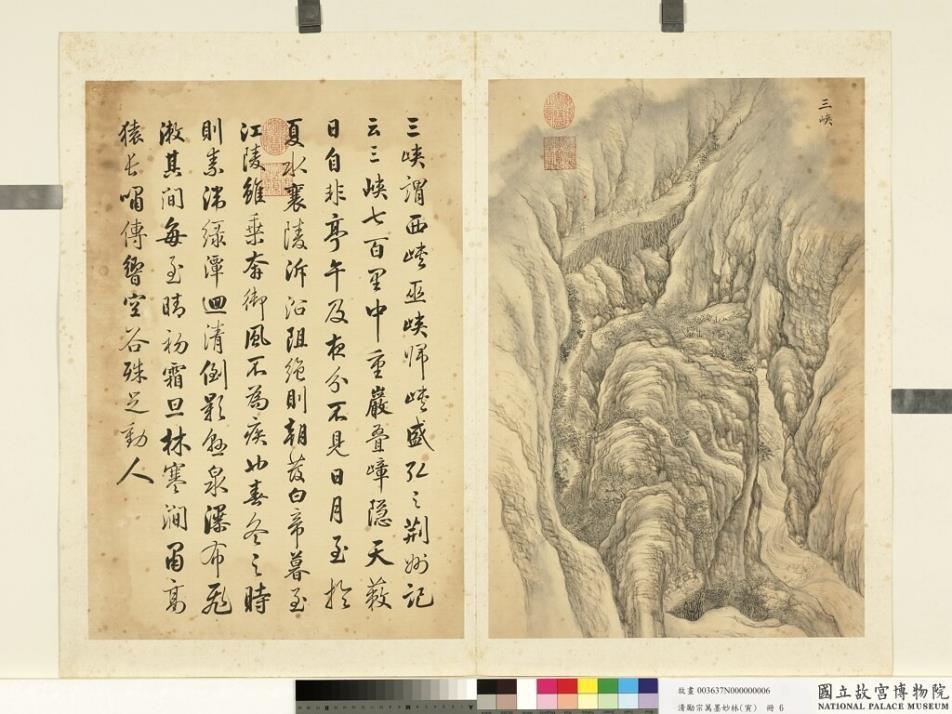 三峽
三峽謂西峽巫峽歸峽盛弘之荊州記
云三峽七百里中重巖疊嶂隱天蔽
日自非亭午及夜分不見日月至於
夏水襄陵泝沿阻絕則朝發白帝暮至
江陵雖乘奔御風不為疾也春冬之時
則素湍綠潭迴清倒影懸泉瀑布飛
漱其間每至晴初霜旦林寒澗肅高
猿長嘯傳響空谷殊足動人
故畫 003637N000000006
清勵宗萬墨妙林(寅) 冊 6
國立故宮博物院
NATIONAL PALACE MUSEUM